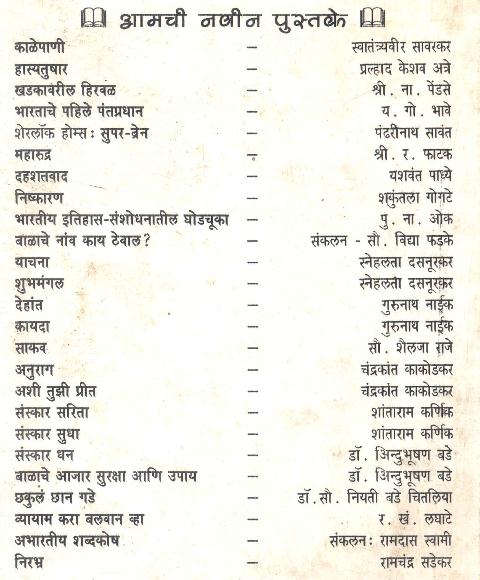 आमची नवीन पुस्तके
काळेपाणी – स्वातंत्र्यवीर सावरकर
हास्यतुषार – प्रल्हाद केशव अत्रे
खडकावरील हिरवळ – श्री. ना. पेंडसे
भारताचे पहिले पंतप्रधान – य. गो. भावे
शेरलॉक होम्स : सुपर-ब्रेन – पंढरीनाथ सावंत
महारुद्र – श्री. र. फाटक
दहशतवाद – यशवंत पाध्ये
निष्कारण – शकुंतला गोगटे
भारतीय इतिहास-संशोधनातील घोडचूका – पु. ना. ओक
बाळाचे नांव काय ठेवाल? – संकलन - सौ. विद्या फडके
याचना – स्नेहलता दसनूरकर
शुभमंगल – स्नेहलता दसनूरकर
देहांत – गुरुनाथ नाईक
कायदा – गुरुनाथ नाईक
साकव – सौ. शैलजा राजे
अनुराग – चंद्रकांत काकोडकर
अशी तुझी प्रीत – चंद्रकांत काकोडकर
संस्कार सरिता – शांताराम कर्णिक
संस्कार सुधा – शांताराम कर्णिक
संस्कार धन – डॉ. अिन्दुभूषण बडे
बाळाचे आजार सुरक्षा आणि उपाय – डॉ. अिन्दुभूषण बडे
छकुलं छान गडे – डॉ. सौ. नियती बडे चितलिया
व्यायाम करा बलवान व्हा – र. खं. लघाटे
अभारतीय शब्दकोष – संकलन: रामदास स्वामी
निरभ्र – रामचंद्र सडेकर